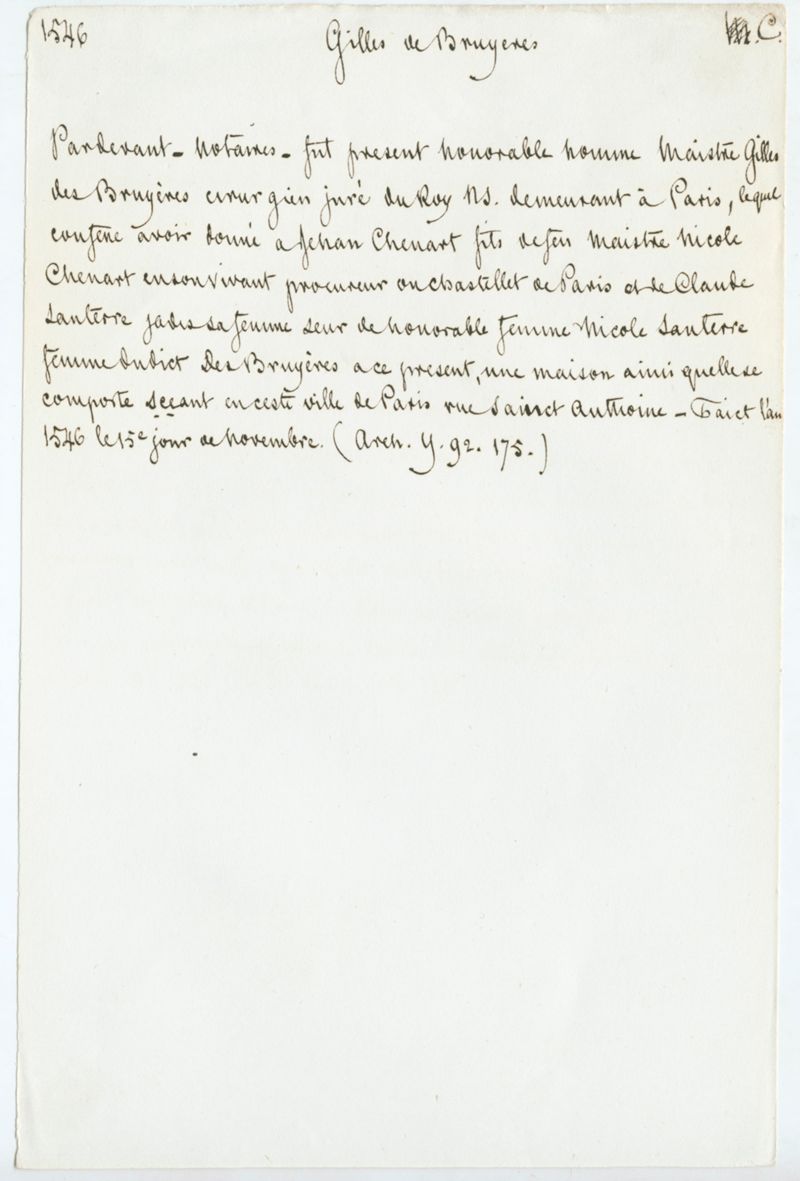 1546 Gilles de Bruyeres C.
Pardevant - Notaires - fut present honorable homme Maistre Gilles
des Bruyères cirurgien juré du Roy NS. demeurant à Paris, lequel
confene avoir donné a Jehan Chenart fils de feu Maistre Nicole
Chenart en son vivant procureur ou chastellet de Paris et de Claude
Santerre jadis sa femme seur de honorable femme Nicole Santerre
femme dudict Des Bruyères a ce present, une maison ainsi quelle se
comporte sceant en ceste ville de Paris rue Sainct Anthoine - Faict l'an
1546 le 15e jour de Novembre. (Arch. Y. 92. 175.)